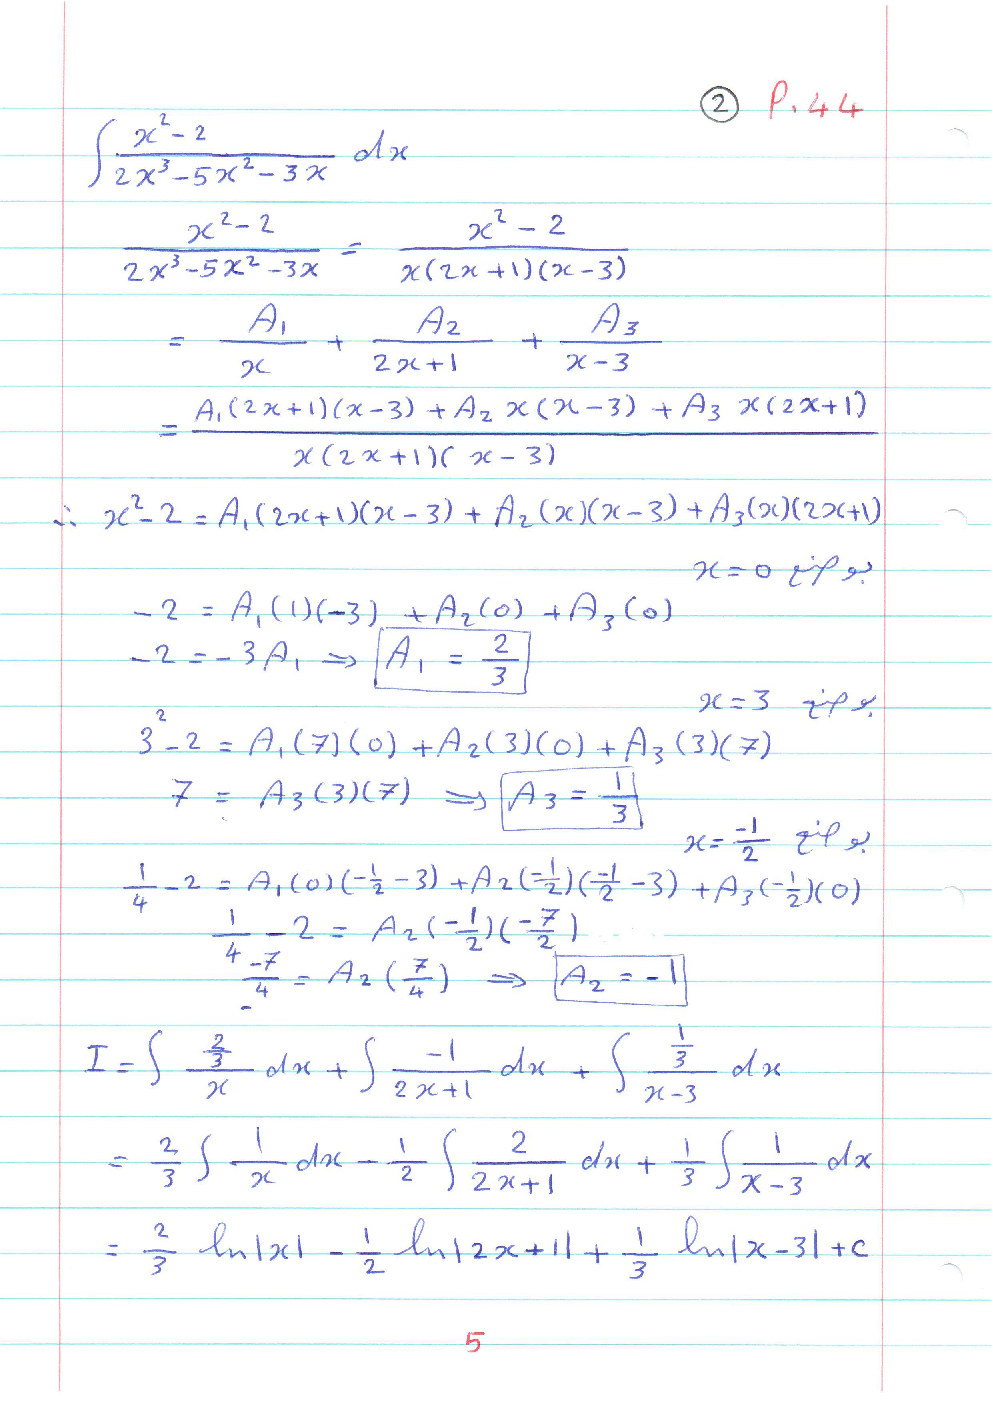 ② P.44
∫ (x² - 2)/(2x³ - 5x² - 3x) dx
(x² - 2)/(2x³ - 5x² - 3x) = (x² - 2)/(x(2x+1)(x-3))
= A₁/x + A₂/(2x+1) + A₃/(x-3)
= (A₁(2x+1)(x-3) + A₂ x(x-3) + A₃ x(2x+1))/(x(2x+1)(x-3))
∴ x² - 2 = A₁(2x+1)(x-3) + A₂(x)(x-3) + A₃(x)(2x+1)
بوضع x = 0
-2 = A₁(1)(-3) + A₂(0) + A₃(0)
-2 = -3A₁ ⇒ A₁ = 2/3
بوضع x = 3
3² - 2 = A₁(7)(0) + A₂(3)(0) + A₃(3)(7)
7 = A₃(3)(7) ⇒ A₃ = 1/3
بوضع x = -1/2
1/4 - 2 = A₁(0)(-1/2 - 3) + A₂(-1/2)(-1/2 - 3) + A₃(-1/2)(0)
1/4 - 2 = A₂(-1/2)(-7/2)
-7/4 = A₂(7/4) ⇒ A₂ = -1
I = ∫ (2/3)/x dx + ∫ -1/(2x+1) dx + ∫ (1/3)/(x-3) dx
= 2/3 ∫ 1/x dx - 1/2 ∫ 2/(2x+1) dx + 1/3 ∫ 1/(x-3) dx
= 2/3 ln|x| - 1/2 ln|2x+1| + 1/3 ln|x-3| + c
5